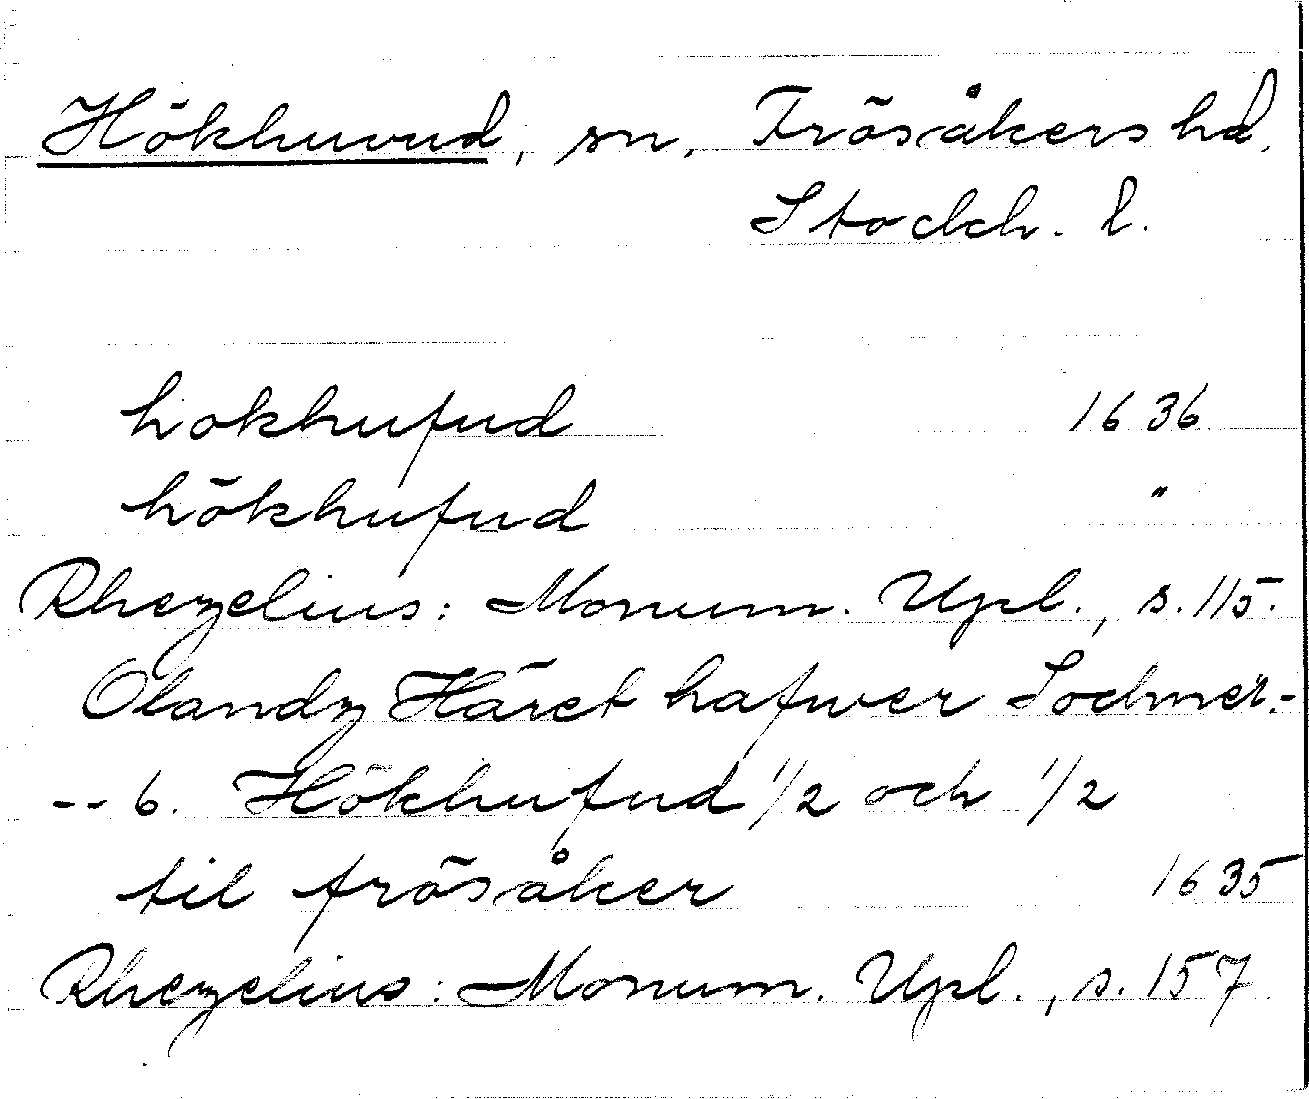 Hökhuvud, sn, Frösåkers hd,
Stockh. l.
hokhufud 1636
hökhufud "
Rhezelius: Monum. Upl., s. 115.
Olandz Häret hafwer Sochner.-
-- 6. Hökhufud 1/2 och 1/2
til frösåker 1635
Rhezelius: Monum. Upl., s. 157